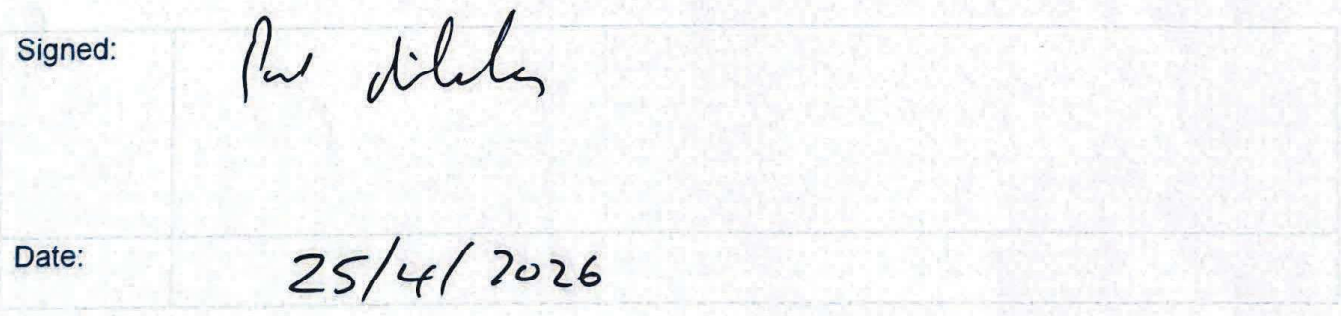 Signed:
Date: 25/4/2026